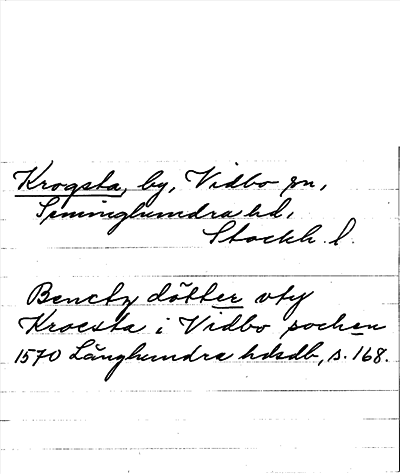 Krogsta, by, Vidbo sn,
Seminghundra hd,
Stockh. l.
Benctz dótter vty
Krocsta i Vidbo sochen
1570 Långhundra hdsdb, s. 168.